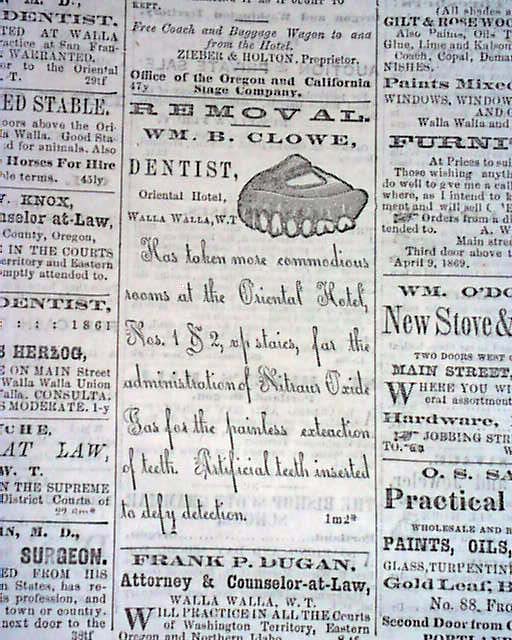 DENTIST.
TED AT WALLA
ractice at San Fran-
WARRANTED.
or to the Oriental
T. 29tf
ED STABLE.
oors above the Ori-
la Walla. Good Sta-
d for animals. Also
Horses For Hire
ble terms. 45ly
KNOX,
nselor at-Law,
County, Oregon,
E IN THE COURTS
erritory and Eastern
mptly attended to.
DENTIST,
: : : : 1861
HERZOG,
E ON MAIN Street
Walla Walla Union
alla. CONSULTA.
S MODERATE. 1-y
CHE,
AT LAW,
W. T.
N THE SUPREME
District Courts of
N, M. D.,
SURGEON.
ED FROM HIS
n States, has re-
is profession, and
town or country.
next door to the
38tf
KEPT.
Free Coach and Baggage Wagon to and
from the Hotel.
ZIEBER & HOLTON, Proprietor.
Office of the Oregon and California
Stage Company.
47y
REMOVAL.
WM. B. CLOWE,
DENTIST,
Oriental Hotel,
WALLA WALLA, W.T.
Has taken more commodious
rooms at the Oriental Hotel,
Nos. 1 & 2, up stairs, for the
administration of Nitrous Oxide
Gas for the painless extraction
of teeth. Artificial teeth inserted
to defy detection. 1m2*
FRANK P. DUGAN,
Attorney & Counselor-at-Law,
WALLA WALLA, W. T.
WILL PRACTICE IN ALL THE Courts
of Washington Territory, Eastern
Oregon and Northern Idaho.
(All shades
GILT & ROSEWOO
Also Paints, Oils T
Glue, Lime and Kalson
Coach, Copal, Dema
NISHES.
Paints Mixed
WINDOWS, WINDOW
AND,
Walla Walla and
FURNI
At Prices to sui
Those wishing anyth
do well to give me a call
where, as I intend to k
ment and will sell C
Orders from a di
tended to. A. W
Main stree
Third door above t
April 9, 1869.
WM. O'DO
New Stove &
TWO DOORS WEST O
MAIN STREET,
WHERE YOU WI
eral assortment
Hardware,
JOBBING STR
TO.
O. S. SA
Practical
WHOLESALE AND R
PAINTS, OILS,
GLASS, TURPENTINE
Gold Leaf, B
No. 88, Fro
Second Door from C